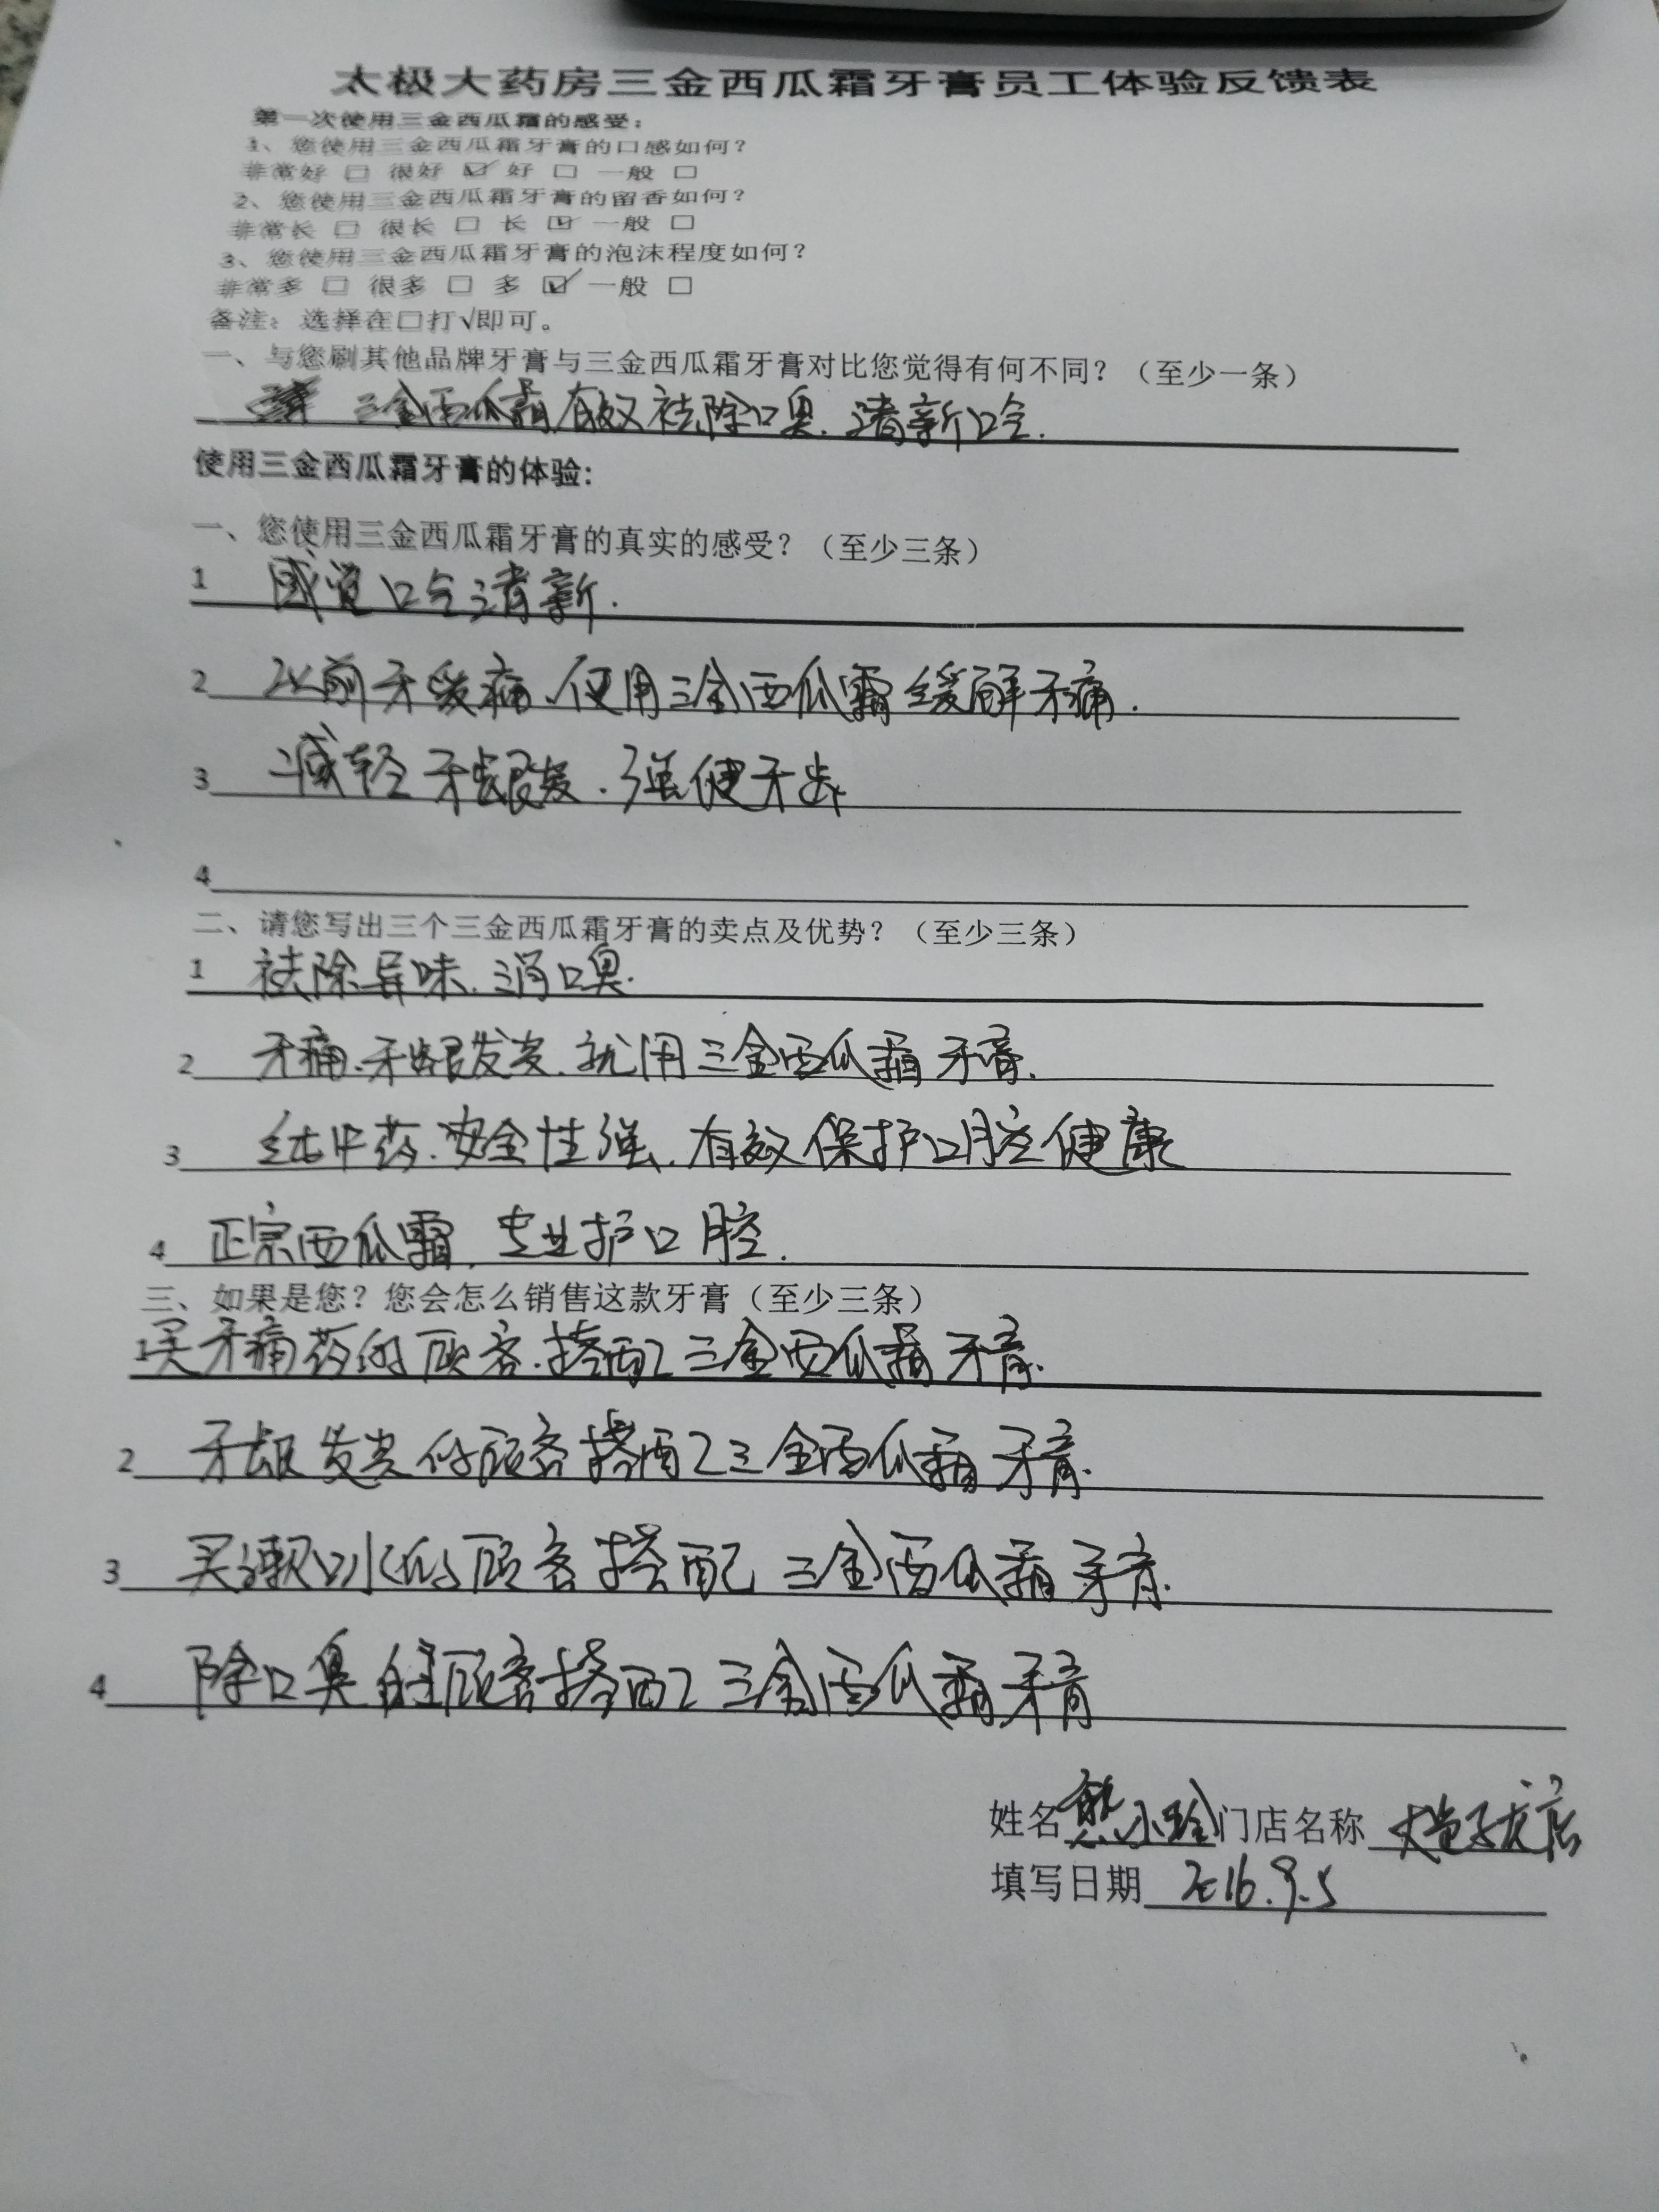 太极大药房三金西瓜霜牙膏员工体验反馈表
第一次使用三金西瓜霜的感受：
1、您使用三金西瓜霜牙膏的口感如何？
非常好 □ 很好 ☑ 好 □ 一般 □
2、您使用三金西瓜霜牙膏的留香如何？
非常长 □ 很长 □ 长 ☑ 一般 □
3、您使用三金西瓜霜牙膏的泡沫程度如何？
非常多 □ 很多 □ 多 ☑ 一般 □
备注：选择在口打√即可。
一、与您刷其他品牌牙膏与三金西瓜霜牙膏对比您觉得有何不同？（至少一条）
三金西瓜霜有效祛除口臭.清新口气.
使用三金西瓜霜牙膏的体验：
一、您使用三金西瓜霜牙膏的真实的感受？（至少三条）
1 感觉口气清新.
2 以前牙疼痛、使用三金西瓜霜缓解牙痛.
3 减轻牙龈炎.强健牙齿
4
二、请您写出三个三金西瓜霜牙膏的卖点及优势？（至少三条）
1 祛除异味.消口臭.
2 牙痛.牙龈发炎.就用三金西瓜霜牙膏.
3 纯中药.安全性强.有效保护口腔健康
4 正宗西瓜霜.专业护口腔.
三、如果是您？您会怎么销售这款牙膏（至少三条）
1买牙痛药的顾客.搭配三金西瓜霜牙膏.
2 牙龈发炎的顾客搭配三金西瓜霜牙膏.
3 买漱口水的顾客搭配三金西瓜霜牙膏.
4 除口臭的顾客搭配三金西瓜霜牙膏
姓名 熊小玲 门店名称
填写日期 2016.9.5